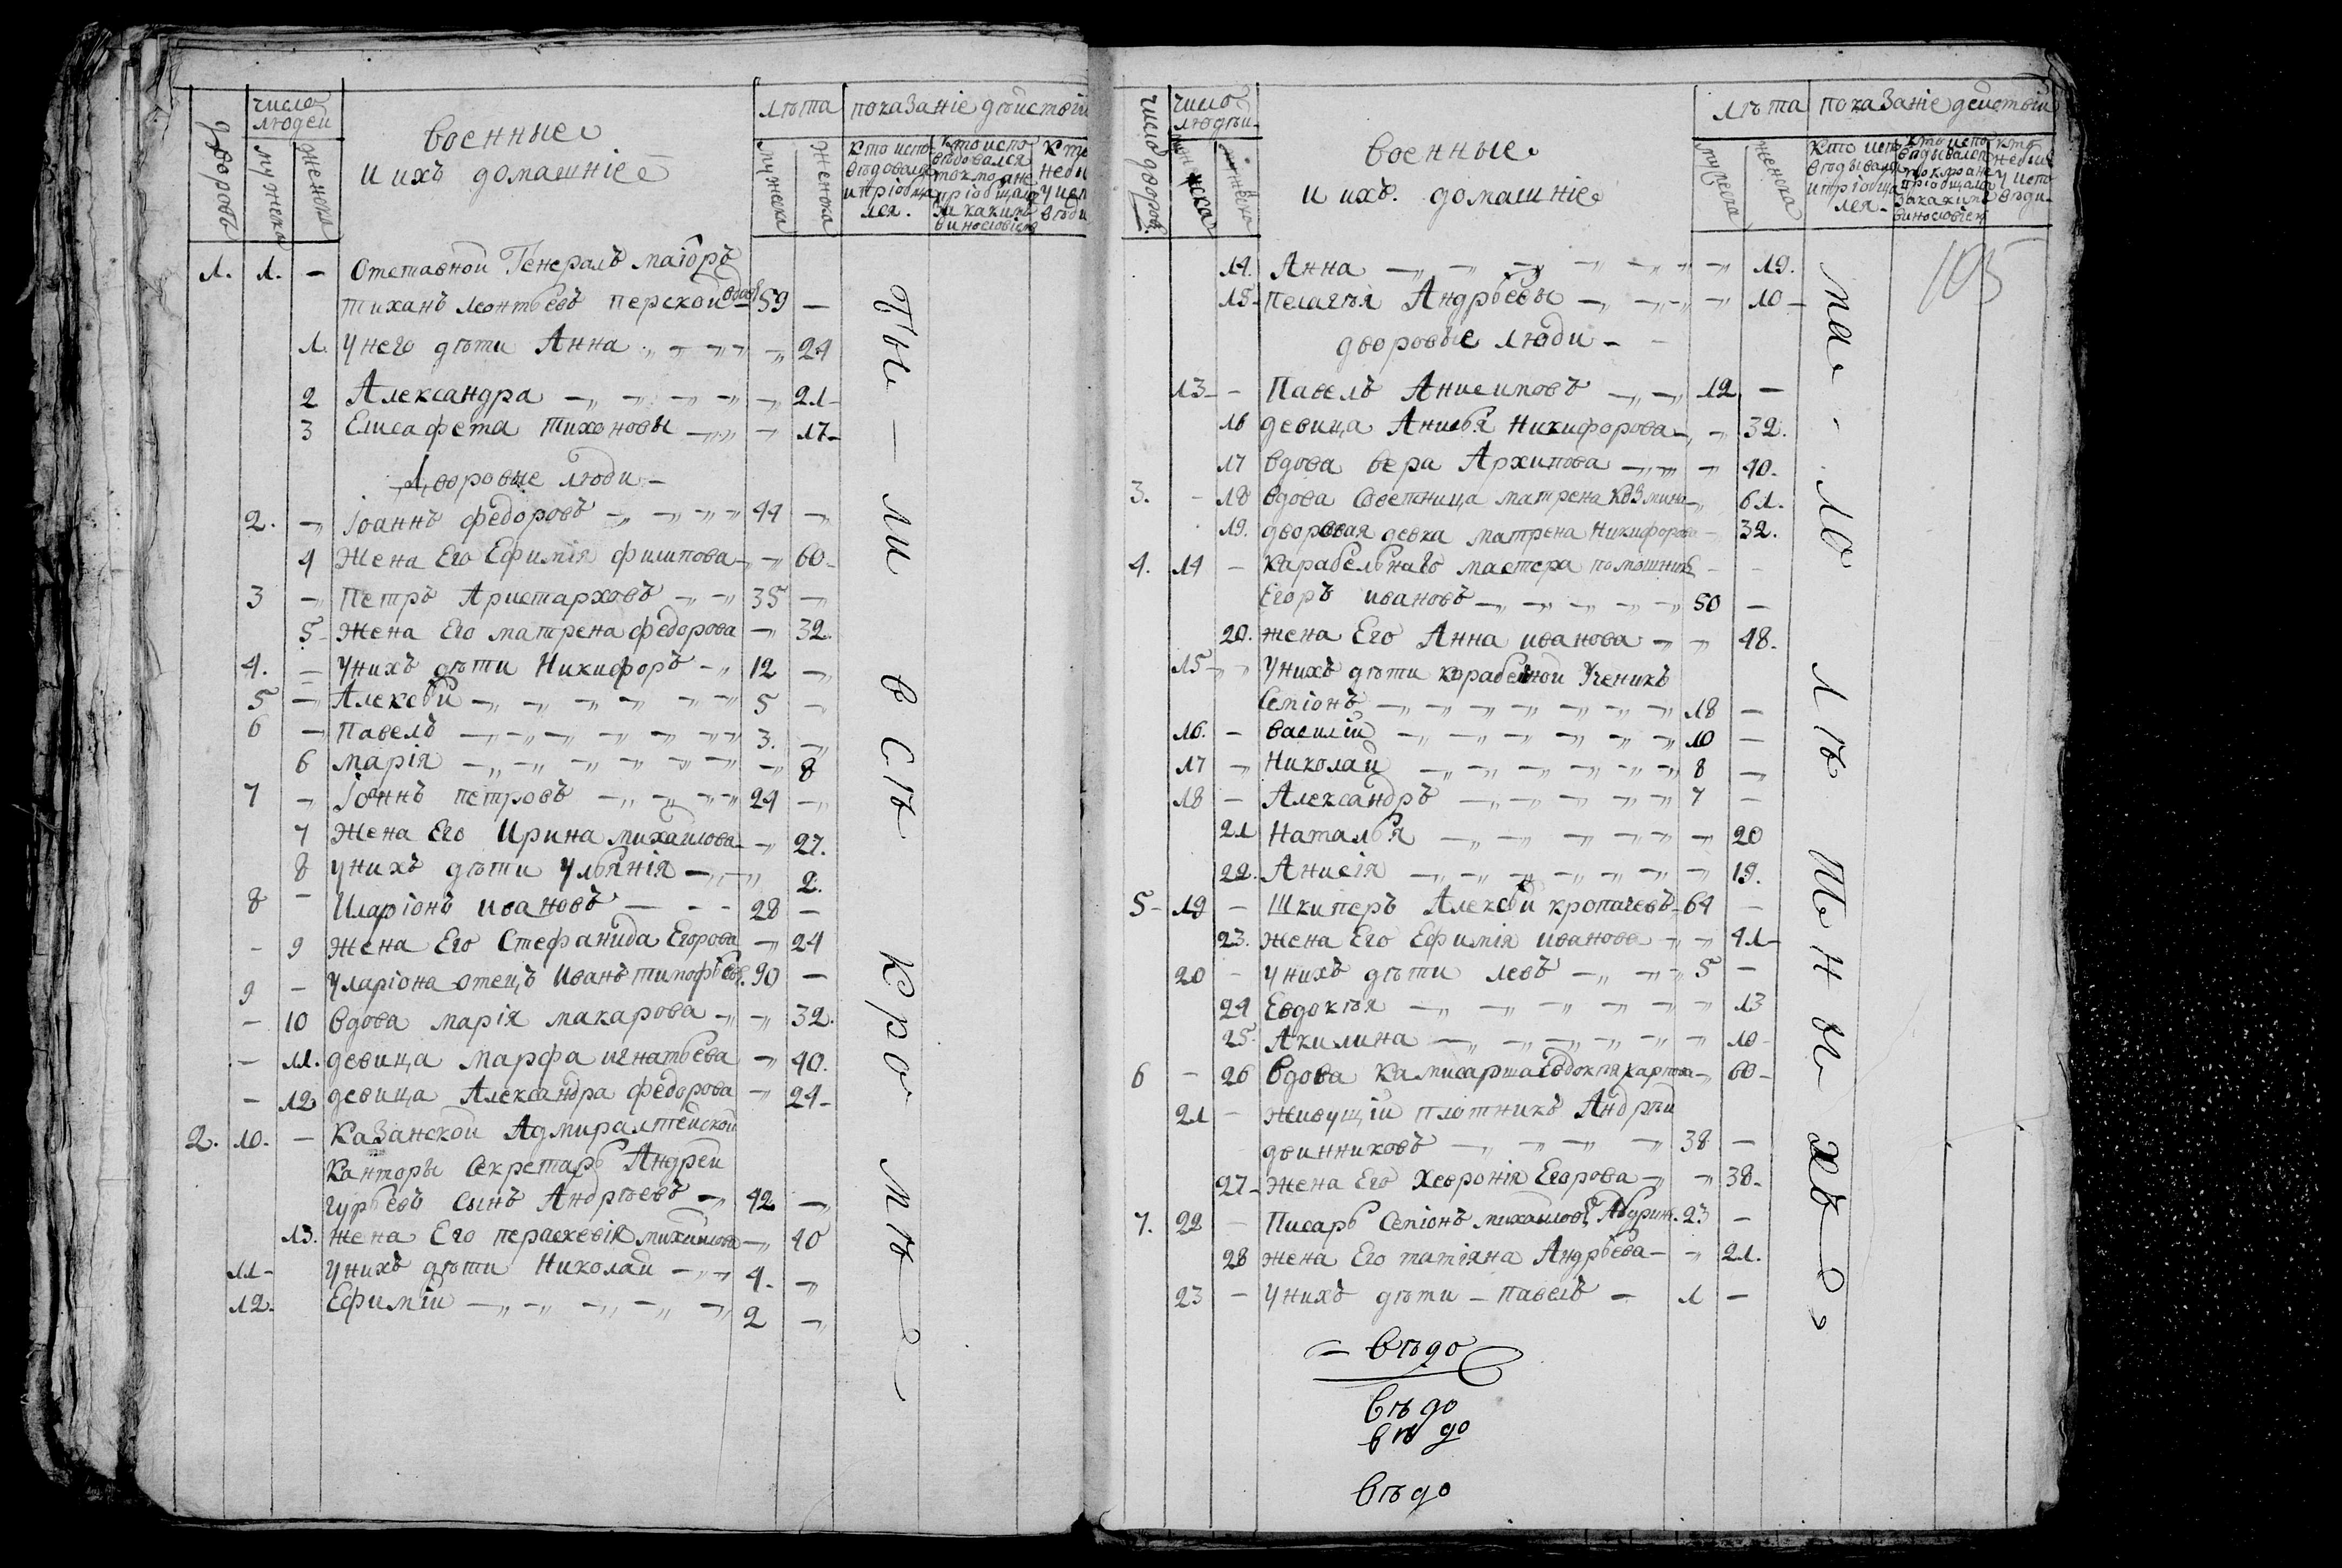 число людей
дворовъ
мужеска
женска
военные
и ихъ домашніе
лѣта
мужеска
женска
показаніе дѣиствіи
кто испо
вѣдовался
и пріобща
лся.
кто испо
вѣдовался
токмо а не
пріобщался
за какимъ
винословіем
1. 1. — Отставной Генералъ маіоръ
тиханъ леонтьевъ перской вдовъ 59 —
1. У него дѣти Анна 24
2 Александра 21
3 Елисафета тихоновы 17
Дворовые люди
2. Іоаннъ федоровъ 44
4 Жена Его Ефимія филипова 60
3 Петръ Аристарховъ 35
5 Жена Его матрена федорова 32
4. У нихъ дѣти Никифоръ 12
5 Алексѣй 5
6 Павелъ 3.
6 марія 8
7 Іоаннъ петровъ 24
7 Жена Его Ирина михаилова 27.
8 У нихъ дѣти Ульянія 2.
8 — Иларіонъ ивановъ 28 —
9 Жена Его Стефанида Егорова 24
9 — Уларіона отецъ Иванъ тимофѣевъ. 90 —
— 10 вдова марія макарова 32.
— 11. девица марфа игнатьева 40.
— 12 девица Александра федорова 24
2. 10. — Казанской Адмиралтейской
Канторы Секретарь Андреи
гурьевъ сынъ Андрѣевъ 42
13. Жена Его параскевія михаилова 40
11 У нихъ дѣти Николаи 4.
12. Ефиміи 2
Ѣы — ли всѣ кромѣ
число дворовъ.
число людѣи
мужеска
военные
и ихъ домашніе
лѣта
мужеска
женска
показаніе деиствіи
14. Анна 19.
15 Пелагѣя Андрѣевы 10
дворовые люди
13 — Павелъ Анисимовъ 12 —
16 девица Анисья Никифорова 32.
17 вдова вера Архипова 40.
3. — 18 вдова Советница матрена Козмина 61.
19. дворовая девка матрена Никифорова 32.
4. 14 — Карабельнаго мастера помошникъ
Егоръ ивановъ 50 —
20. жена Его Анна иванова 48.
15 У нихъ дѣти карабелной Ученикъ
Семіонъ 18 —
16. — василіи 10 —
17 Николаи 8
18 — Александръ 7 —
21 Наталья 20
22. Анисія 19.
5 19 — Шкиперъ Алексѣи кропачевъ 64 —
23. жена Его Ефимія иванова 41
20 — У нихъ дѣти левъ 5 —
24 Евдокѣя 13
25. Акилина 10
6 — 26 вдова Камисарша Евдокѣя карпова 60
21 — живущіи плотникъ Андрѣи
двинниковъ 38 —
27 Жена Его Хевронія Егорова 38
7. 22 — Писарь Семіонъ михаиловъ 23 —
28 жена Его татіяна Андрѣева 21.
23 — У нихъ дѣти — павелъ 1 —
ма ло лѣтныхъ
105
вѣдо
вѣдо
вѣдо
вѣдо